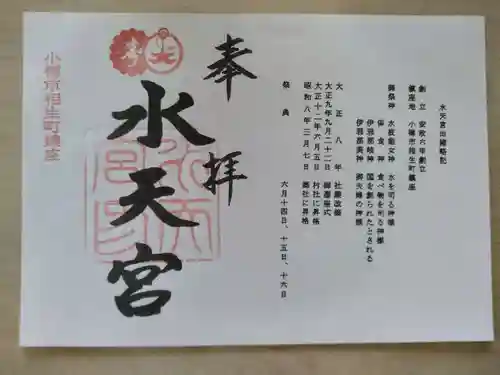 水天宮由緒略記
創立 安政六年創立
鎮座地 小樽市相生町鎮座
御祭神 水波能女神 水を司る神様
保食神 食べ物を司る神様
伊邪那岐神 国を創られたとされる
伊邪那美神 御夫婦の神様
大正八年 社殿改築
大正九年九月二十二日 御遷座式
大正十二年六月五日 村社に昇格
昭和八年三月七日 郷社に昇格
祭典 六月十四日、十五日、十六日
奉拝
水天宮
小樽市相生町鎮座